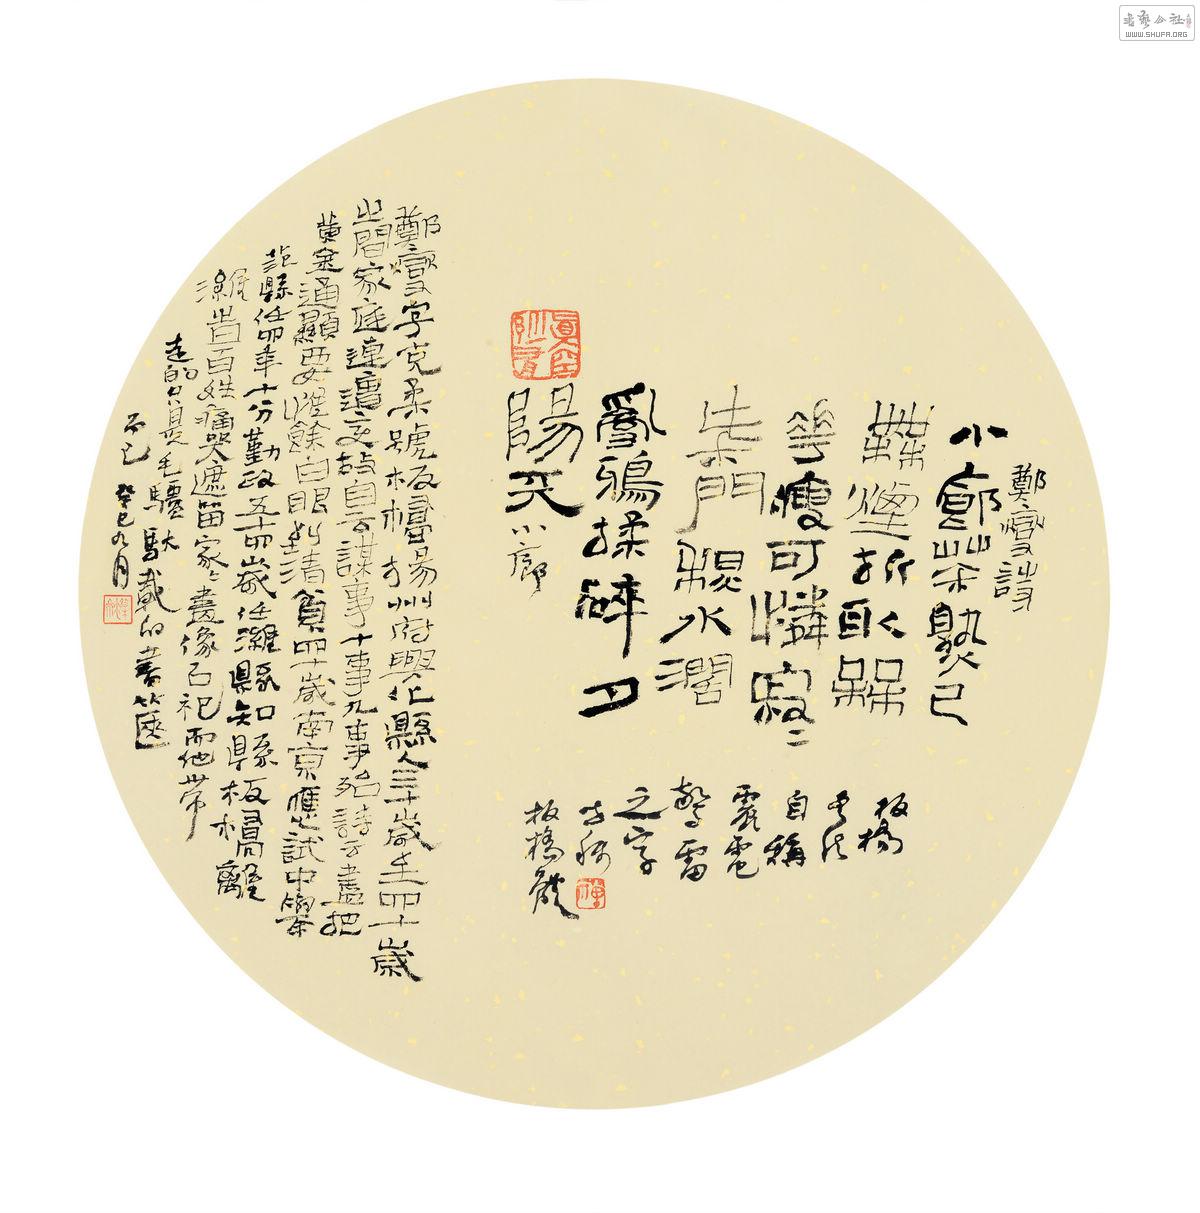 鄭燮詩
小廊茶熟已
無煙折取槑
花瘦可憐寂二
柴門秋水闊
亂鴉揉碎夕
陽天 小廊
板橋
書法
自稱
震電
驚雷
之字
板橋體
鄭燮字克柔號板橋揚州府興化縣人三十歲至四十歲
之間家庭連遭變故自云謀事十事九事殆詩云盡把
黃金通顯要惟餘白眼到清貧四十歲南京應試中舉
范縣任四年十分勤政五十四歲任濰縣知縣板橋離
濰時百姓痛哭遮留家二畫像以祀而他帶
走的只是毛驢馱載的書篋
而已 癸巳九月
WWW.SHUFA.ORG